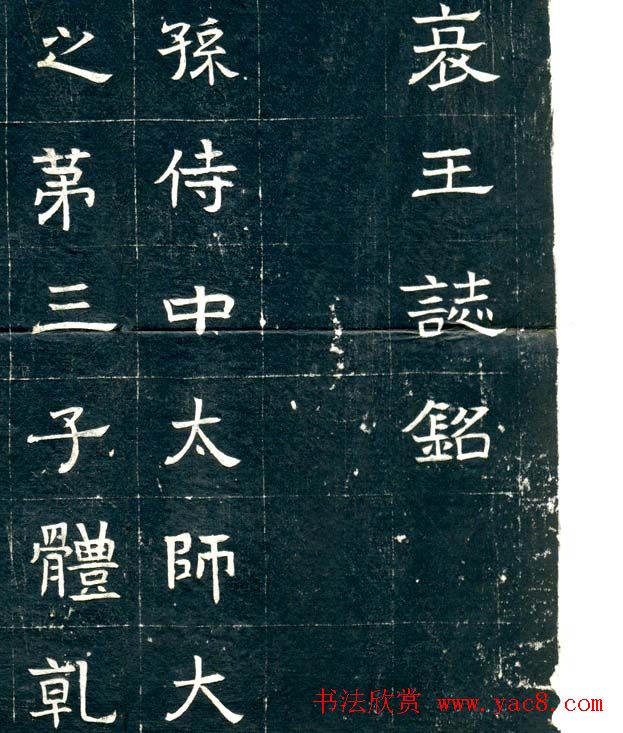 哀王誌銘
孫侍中太師大
之苐三子體乹
书法欣赏 www.yac8.com